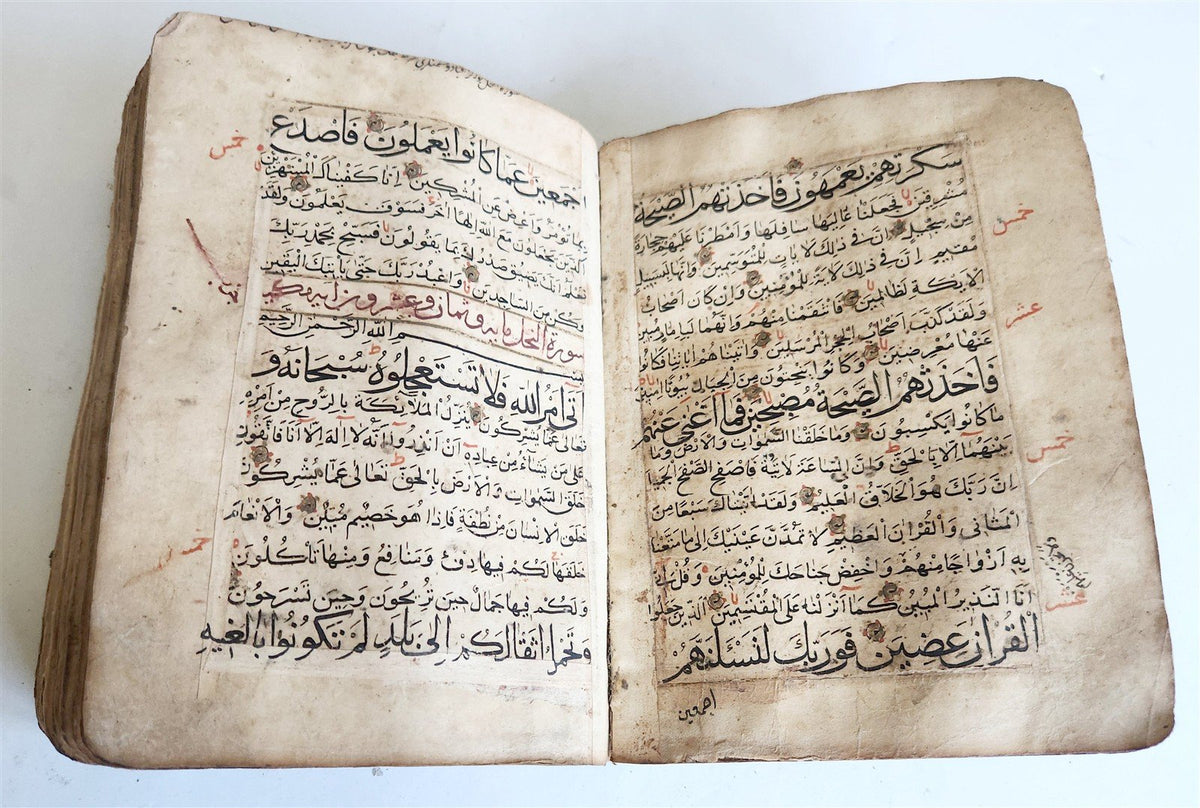 سَكْرَتِهِمْ يَعْمَهُونَ فَاَخَذَتْهُمُ الصَّيْحَةُ
مُشْرِقِينَ فَجَعَلْنَا عَالِيَهَا سَافِلَهَا وَاَمْطَرْنَا عَلَيْهِمْ حِجَارَةً
خمس
مِنْ سِجِّيلٍ اِنَّ فِي ذٰلِكَ لَاٰيَاتٍ لِلْمُتَوَسِّمِينَ وَاِنَّهَا لَبِسَبِيلٍ
مُقِيمٍ اِنَّ فِي ذٰلِكَ لَاٰيَةً لِلْمُؤْمِنِينَ وَاِنْ كَانَ اَصْحَابُ
الْاَيْكَةِ لَظَالِمِينَ فَانْتَقَمْنَا مِنْهُمْ وَاِنَّهُمَا لَبِاِمَامٍ مُبِينٍ
وَلَقَدْ كَذَّبَ اَصْحَابُ الْحِجْرِ الْمُرْسَلِينَ وَاٰتَيْنَاهُمْ اٰيَاتِنَا فَكَانُوا
عشر
عَنْهَا مُعْرِضِينَ وَكَانُوا يَنْحِتُونَ مِنَ الْجِبَالِ بُيُوتًا اٰمِنِينَ
فَاَخَذَتْهُمُ الصَّيْحَةُ مُصْبِحِينَ فَمَا اَغْنٰى عَنْهُمْ
مَا كَانُوا يَكْسِبُونَ وَمَا خَلَقْنَا السَّمٰوَاتِ وَالْاَرْضَ وَمَا
بَيْنَهُمَا اِلَّا بِالْحَقِّ وَاِنَّ السَّاعَةَ لَاٰتِيَةٌ فَاصْفَحِ الصَّفْحَ الْجَمِيلَ
خمس
اِنَّ رَبَّكَ هُوَ الْخَلَّاقُ الْعَلِيمُ وَلَقَدْ اٰتَيْنَاكَ سَبْعًا مِنَ
الْمَثَانِي وَالْقُرْاٰنَ الْعَظِيمَ لَا تَمُدَّنَّ عَيْنَيْكَ اِلٰى مَا مَتَّعْنَا
بِهِ اَزْوَاجًا مِنْهُمْ وَاخْفِضْ جَنَاحَكَ لِلْمُؤْمِنِينَ وَقُلْ اِنِّي
اَنَا النَّذِيرُ الْمُبِينُ كَمَا اَنْزَلْنَا عَلَى الْمُقْتَسِمِينَ الَّذِينَ جَعَلُوا
عشر
الْقُرْاٰنَ عِضِينَ فَوَرَبِّكَ لَنَسْئَلَنَّهُمْ
اجمعين
اَجْمَعِينَ عَمَّا كَانُوا يَعْمَلُونَ فَاصْدَعْ
خمس
بِمَا تُؤْمَرُ وَاَعْرِضْ عَنِ الْمُشْرِكِينَ اِنَّا كَفَيْنَاكَ الْمُسْتَهْزِئِينَ
الَّذِينَ يَجْعَلُونَ مَعَ اللّٰهِ اِلٰهًا اٰخَرَ فَسَوْفَ يَعْلَمُونَ وَلَقَدْ
نَعْلَمُ اَنَّكَ يَضِيقُ صَدْرُكَ بِمَا يَقُولُونَ فَسَبِّحْ بِحَمْدِ رَبِّكَ
وَكُنْ مِنَ السَّاجِدِينَ وَاعْبُدْ رَبَّكَ حَتّٰى يَاْتِيَكَ الْيَقِينُ
سورة النحل مايه وثمان وعشرون ايه مكيه
بسم الله الرحمن الرحيم
اَتٰى اَمْرُ اللّٰهِ فَلَا تَسْتَعْجِلُوهُ سُبْحَانَهُ وَ
تَعَالٰى عَمَّا يُشْرِكُونَ يُنَزِّلُ الْمَلَائِكَةَ بِالرُّوحِ مِنْ اَمْرِهِ
عَلٰى مَنْ يَشَاءُ مِنْ عِبَادِهِ اَنْ اَنْذِرُوا اَنَّهُ لَا اِلٰهَ اِلَّا اَنَا فَاتَّقُونِ
خَلَقَ السَّمٰوَاتِ وَالْاَرْضَ بِالْحَقِّ تَعَالٰى عَمَّا يُشْرِكُونَ
خَلَقَ الْاِنْسَانَ مِنْ نُطْفَةٍ فَاِذَا هُوَ خَصِيمٌ مُبِينٌ وَالْاَنْعَامَ
خَلَقَهَا لَكُمْ فِيهَا دِفْءٌ وَمَنَافِعُ وَمِنْهَا تَاْكُلُونَ
خمس
وَلَكُمْ فِيهَا جَمَالٌ حِينَ تُرِيحُونَ وَحِينَ تَسْرَحُونَ
وَتَحْمِلُ اَثْقَالَكُمْ اِلٰى بَلَدٍ لَمْ تَكُونُوا بَالِغِيهِ